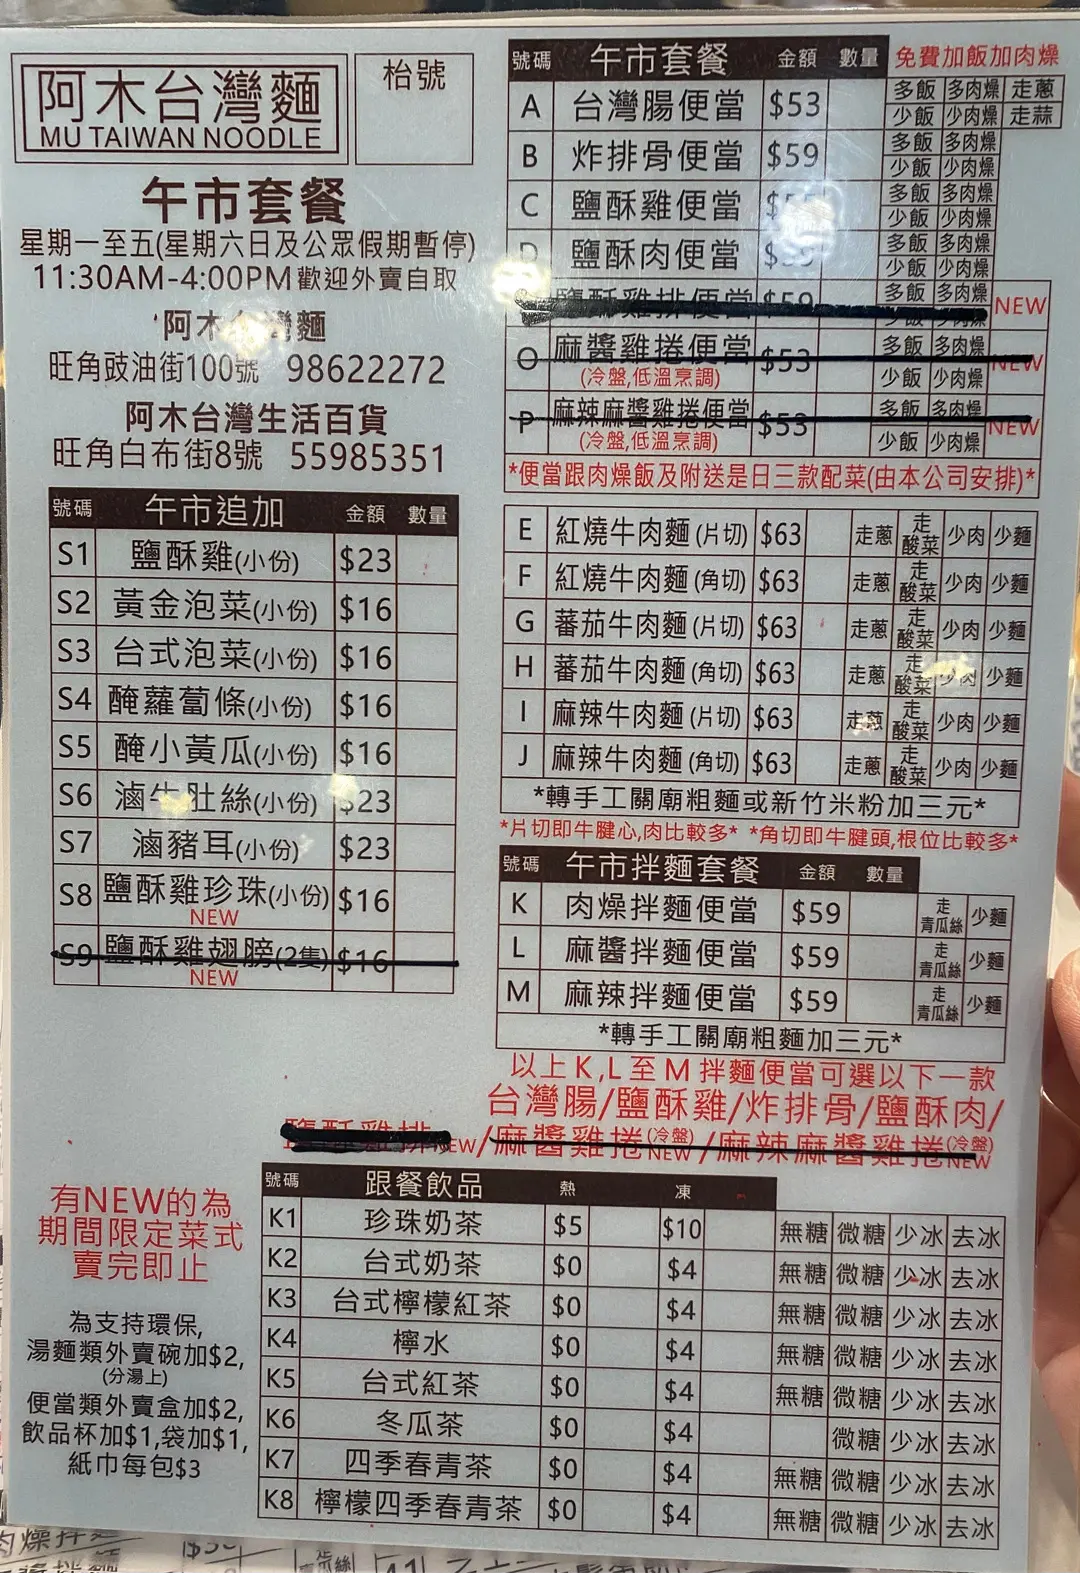 阿木台灣麵
MU TAIWAN NOODLE
枱號
午市套餐
星期一至五(星期六日及公眾假期暫停)
11:30AM-4:00PM歡迎外賣自取
阿木台灣麵
旺角豉油街100號 98622272
阿木台灣生活百貨
旺角白布街8號 55985351
號碼 午市追加 金額 數量
S1 鹽酥雞(小份) $23
S2 黃金泡菜(小份) $16
S3 台式泡菜(小份) $16
S4 醃蘿蔔條(小份) $16
S5 醃小黃瓜(小份) $16
S6 滷牛肚絲(小份) $23
S7 滷豬耳(小份) $23
S8 鹽酥雞珍珠(小份) $16
NEW
S9 鹽酥雞翅膀(2隻) $16
NEW
號碼 午市套餐 金額 數量 免費加飯加肉燥
A 台灣腸便當 $53 多飯 多肉燥 走蔥
少飯 少肉燥 走蒜
B 炸排骨便當 $59 多飯 多肉燥
少飯 少肉燥
C 鹽酥雞便當 多飯 多肉燥
少飯 少肉燥
D 鹽酥肉便當 多飯 多肉燥
少飯 少肉燥
鹽酥雞排便當 $59 多飯 多肉燥 NEW
少飯 少肉燥
O 麻醬雞捲便當 $53 多飯 多肉燥 NEW
(冷盤,低溫烹調) 少飯 少肉燥
P 麻辣麻醬雞捲便當 $53 多飯 多肉燥 NEW
(冷盤,低溫烹調) 少飯 少肉燥
*便當跟肉燥飯及附送是日三款配菜(由本公司安排)*
E 紅燒牛肉麵(片切) $63 走蔥 走酸菜 少肉 少麵
F 紅燒牛肉麵(角切) $63 走蔥 走酸菜 少肉 少麵
G 蕃茄牛肉麵(片切) $63 走蔥 走酸菜 少肉 少麵
H 蕃茄牛肉麵(角切) $63 走蔥 走酸菜 少肉 少麵
I 麻辣牛肉麵(片切) $63 走蔥 走酸菜 少肉 少麵
J 麻辣牛肉麵(角切) $63 走蔥 走酸菜 少肉 少麵
*轉手工關廟粗麵或新竹米粉加三元*
*片切即牛腱心,肉比較多* *角切即牛腱頭,根位比較多*
號碼 午市拌麵套餐 金額 數量
K 肉燥拌麵便當 $59 走青瓜絲 少麵
L 麻醬拌麵便當 $59 走青瓜絲 少麵
M 麻辣拌麵便當 $59 走青瓜絲 少麵
*轉手工關廟粗麵加三元*
以上K,L至M拌麵便當可選以下一款
台灣腸/鹽酥雞/炸排骨/鹽酥肉/
鹽酥雞排NEW/麻醬雞捲(冷盤)NEW/麻辣麻醬雞捲(冷盤)NEW
有NEW的為
期間限定菜式
賣完即止
為支持環保,
湯麵類外賣碗加$2,
(分湯上)
便當類外賣盒加$2,
飲品杯加$1,袋加$1,
紙巾每包$3
號碼 跟餐飲品 熱 凍
K1 珍珠奶茶 $5 $10 無糖 微糖 少冰 去冰
K2 台式奶茶 $0 $4 無糖 微糖 少冰 去冰
K3 台式檸檬紅茶 $0 $4 無糖 微糖 少冰 去冰
K4 檸水 $0 $4 無糖 微糖 少冰 去冰
K5 台式紅茶 $0 $4 無糖 微糖 少冰 去冰
K6 冬瓜茶 $0 $4 微糖 少冰 去冰
K7 四季春青茶 $0 $4 無糖 微糖 少冰 去冰
K8 檸檬四季春青茶 $0 $4 無糖 微糖 少冰 去冰